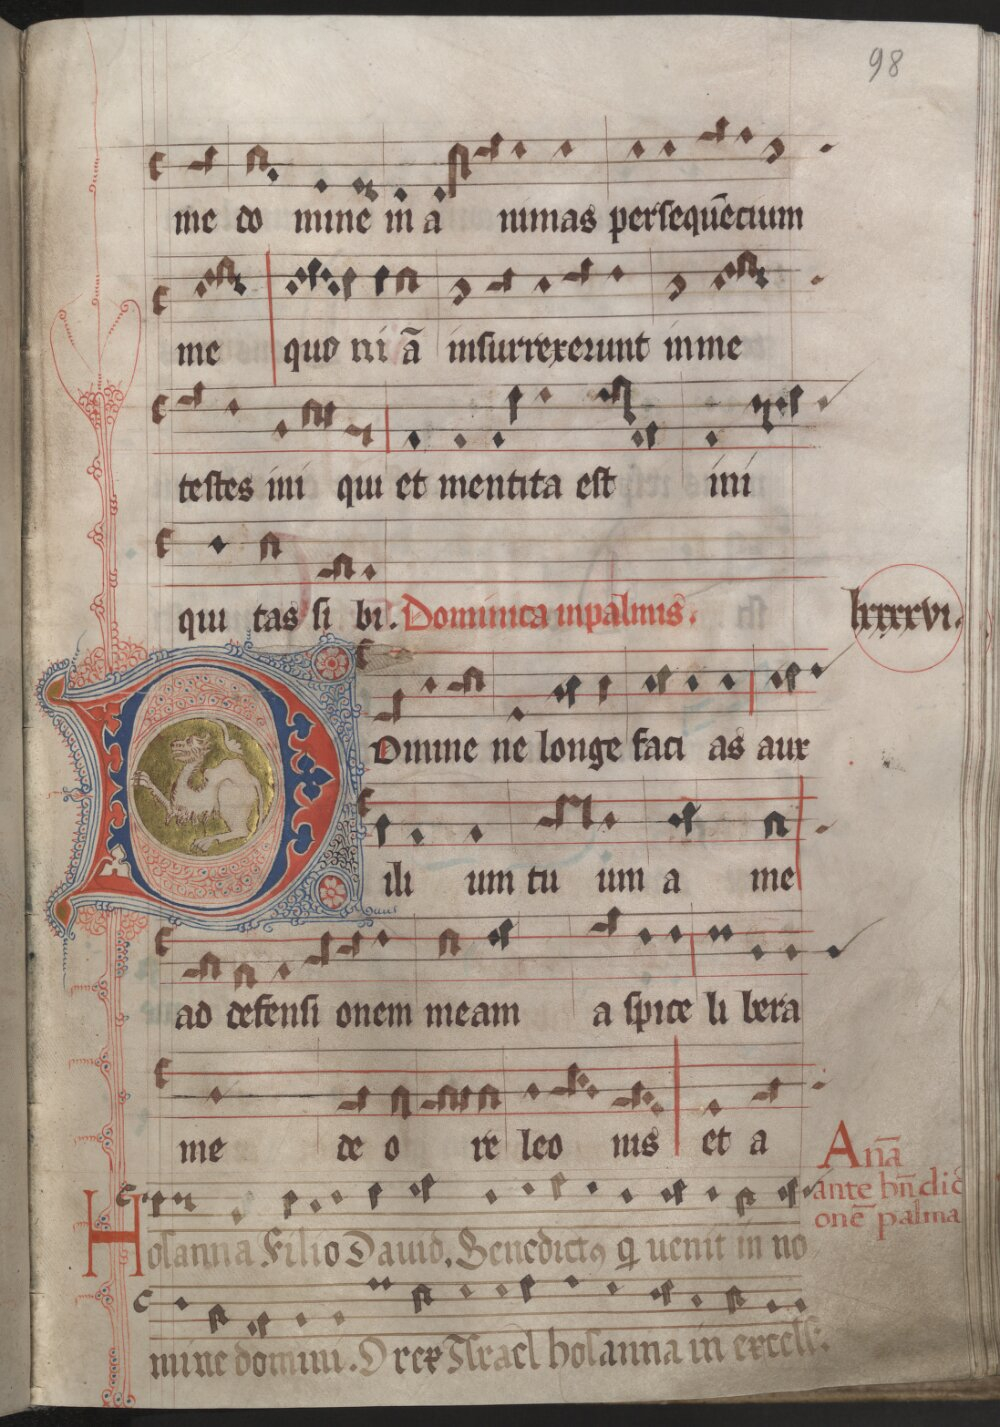 98
me do mine in ā nimas persequēcium
me quo ni ā insurrexerunt in me
testes ini qui et mentita est ini
qui tas si bi. Dominica in palmis.
lxxxxvi.
Domine ne longe faci as aux
ili um tu um a me
ad defensi onem meam a spice li bera
me de o re leo nis et a
Anā
ante bn̄dic̄
onē palma
Hosanna Filio Dauid. Benedictꝯ q̄ uenit in no
mine domini. O rex Israel hosanna in excels: